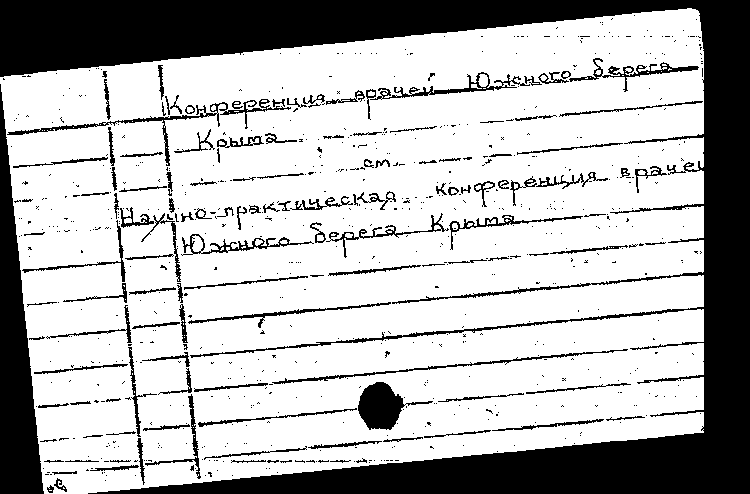 Конференция врачей Южного берега
Крыма
см.
Научно-практическая конференция врачей
Южного берега Крыма